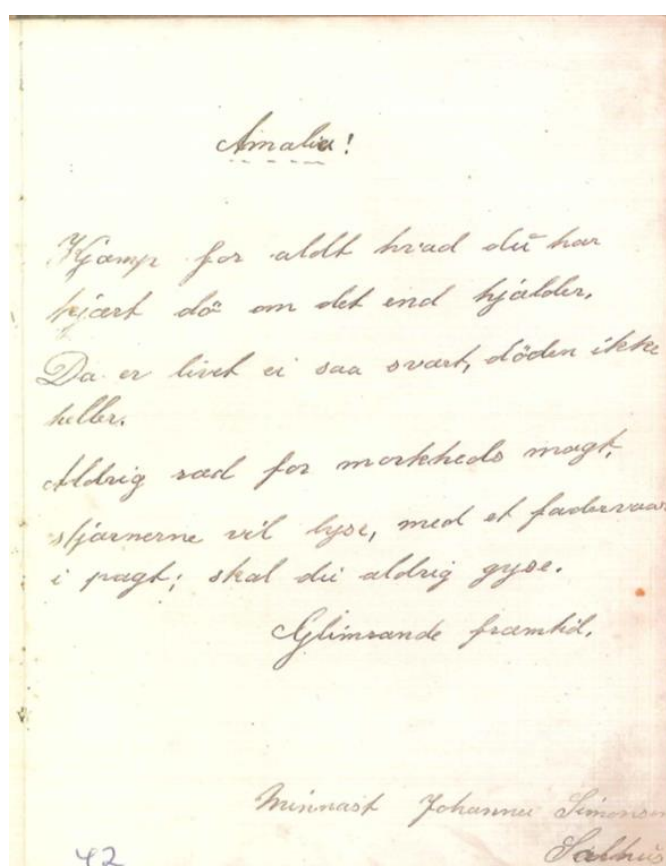 Amalia!
Kjæmp for aldt hvad du har
kjært dö om det end gjælder,
Da er livet ei saa svært, döden ikke
heller.
Aldrig ræd for morkheds magt,
stjærnerne vil lyse, med et fadervaar
i pagt; skal du aldrig gyse.
Glimrande framtid.
Minnast Johanne Simonsen
42